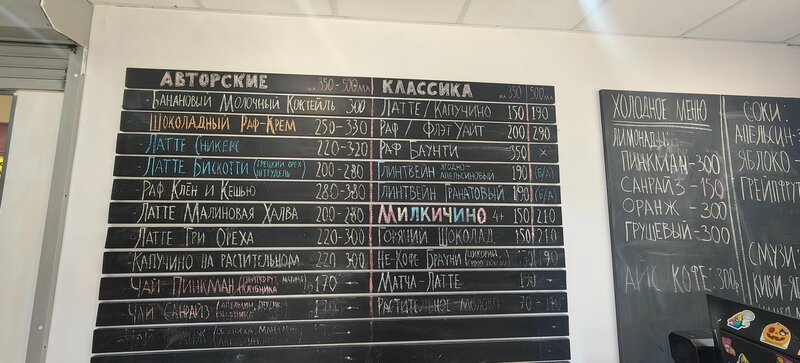 АВТОРСКИЕ 350-500мл
БАНАНОВЫЙ МОЛОЧНЫЙ КОКТЕЙЛЬ 300
ШОКОЛАДНЫЙ РАФ-КРЕМ 250-330
ЛАТТЕ СНИКЕРС 220-320
ЛАТТЕ БИСКОТТИ (ГРЕЦКИЙ ОРЕХ ШТРУДЕЛЬ) 200-280
РАФ КЛЁН И КЕШЬЮ 280-380
ЛАТТЕ МАЛИНОВАЯ ХАЛВА 200-280
ЛАТТЕ ТРИ ОРЕХА 220-300
КАПУЧИНО НА РАСТИТЕЛЬНОМ 220 300
ЧАЙ ПИНКМАН (ГРЕЙПФРУТ, МАЛИНА, КЛУБНИКА) 170 -
ЧАЙ САНРАЙЗ 170 -
КЛАССИКА 350 500мл
ЛАТТЕ/КАПУЧИНО 150 190
РАФ/ФЛЭТ УАЙТ 200 290
РАФ БАУНТИ 350 -
ЛИНТВЕЙН ЯГОДНО-АПЕЛЬСИНОВЫЙ 190 (Б/А)
ЛИНТВЕЙН ГРАНАТОВЫЙ 190 (Б/А)
МИЛКИЧИНО 4+ 150 210
ГОРЯЧИЙ ШОКОЛАД 150 210
НЕ-КОФЕ БРАУНИ 190
МАТЧА-ЛАТТЕ
РАСТИТЕЛЬНОЕ МОЛОКО 70
ХОЛОДНОЕ МЕНЮ
ЛИМОНАДЫ:
ПИНКМАН-300
САНРАЙЗ-150
ОРАНЖ-300
ГРУШЕВЫЙ-300
АЙС КОФЕ: 300р
СОКИ
АПЕЛЬСИН-
ЯБЛОКО-
ГРЕЙПФРУТ
СМУЗИ:
КИВИ-ЯБ